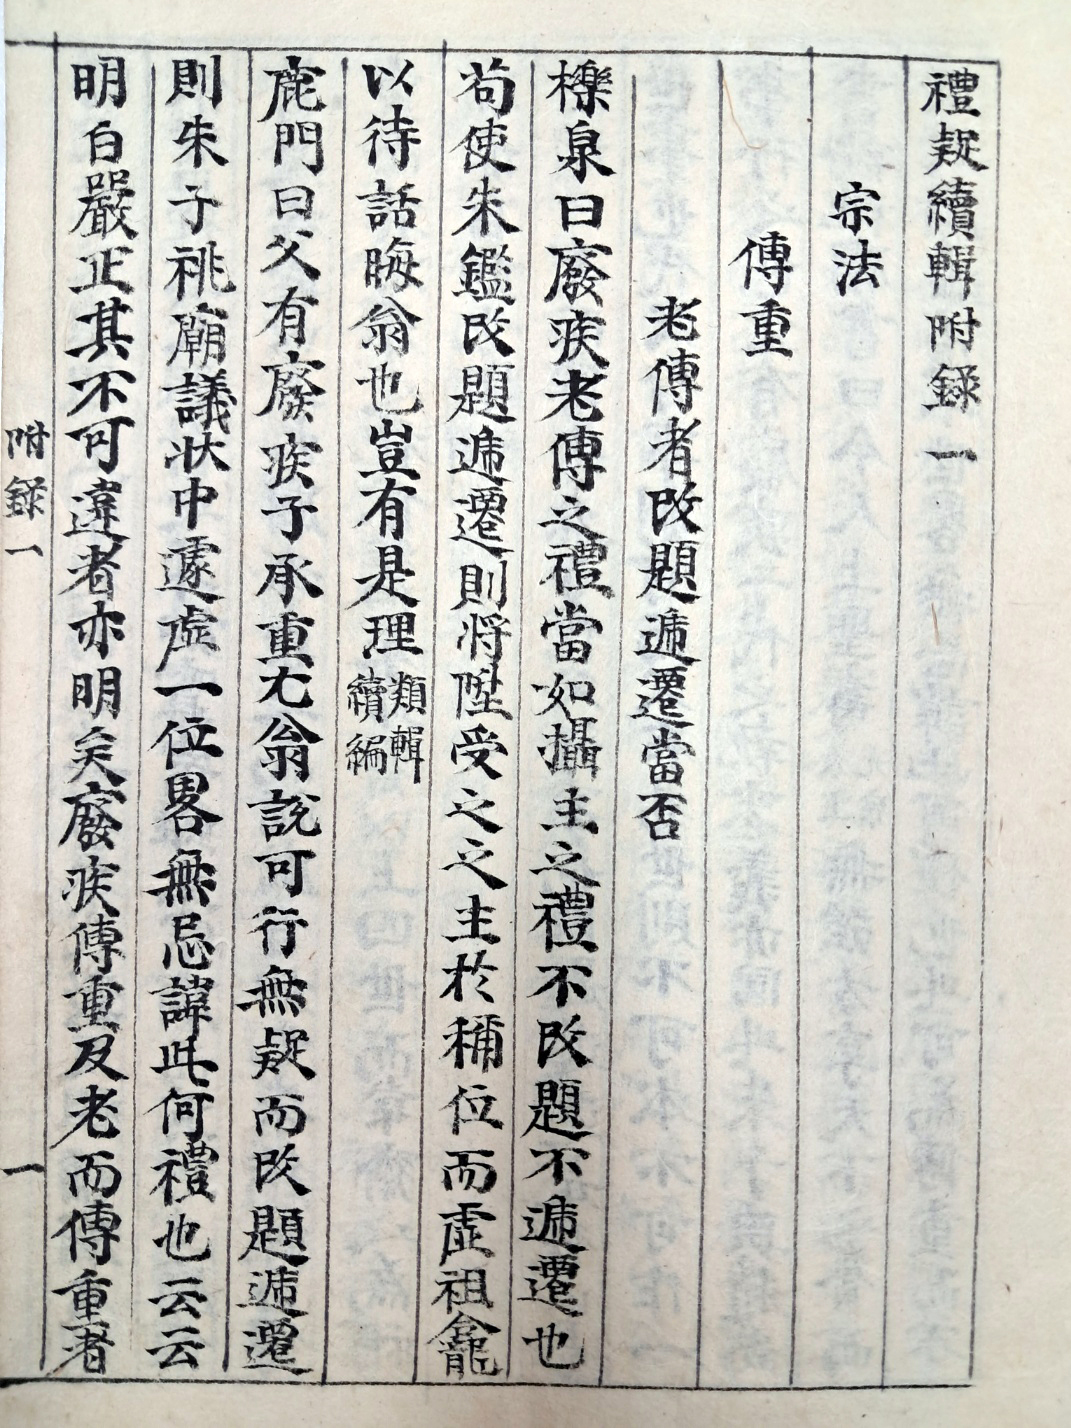 禮疑續輯附錄一
宗法
傳重
老傳者改題遞遷當否
櫟泉曰廢疾老傳之禮當如攝主之禮不改題不遞遷也
苟使朱鑑改題遞遷則將陞受之之主於禰位而虛祖龕
以待話晦翁也豈有是理類輯續編
鹿門曰父有廢疾子承重尤翁說可行無疑而改題遞遷
則朱子祧廟議狀中遽虛一位畧無忌諱此何禮也云云
明白嚴正其不可違者亦明矣廢疾傳重及老而傳重者
附錄一
一